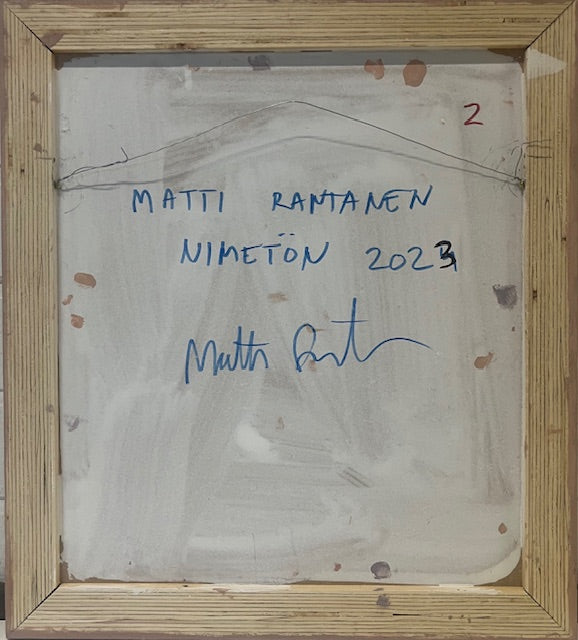 2
MATTI RANTANEN
NIMETÖN 2023
Matti Rant